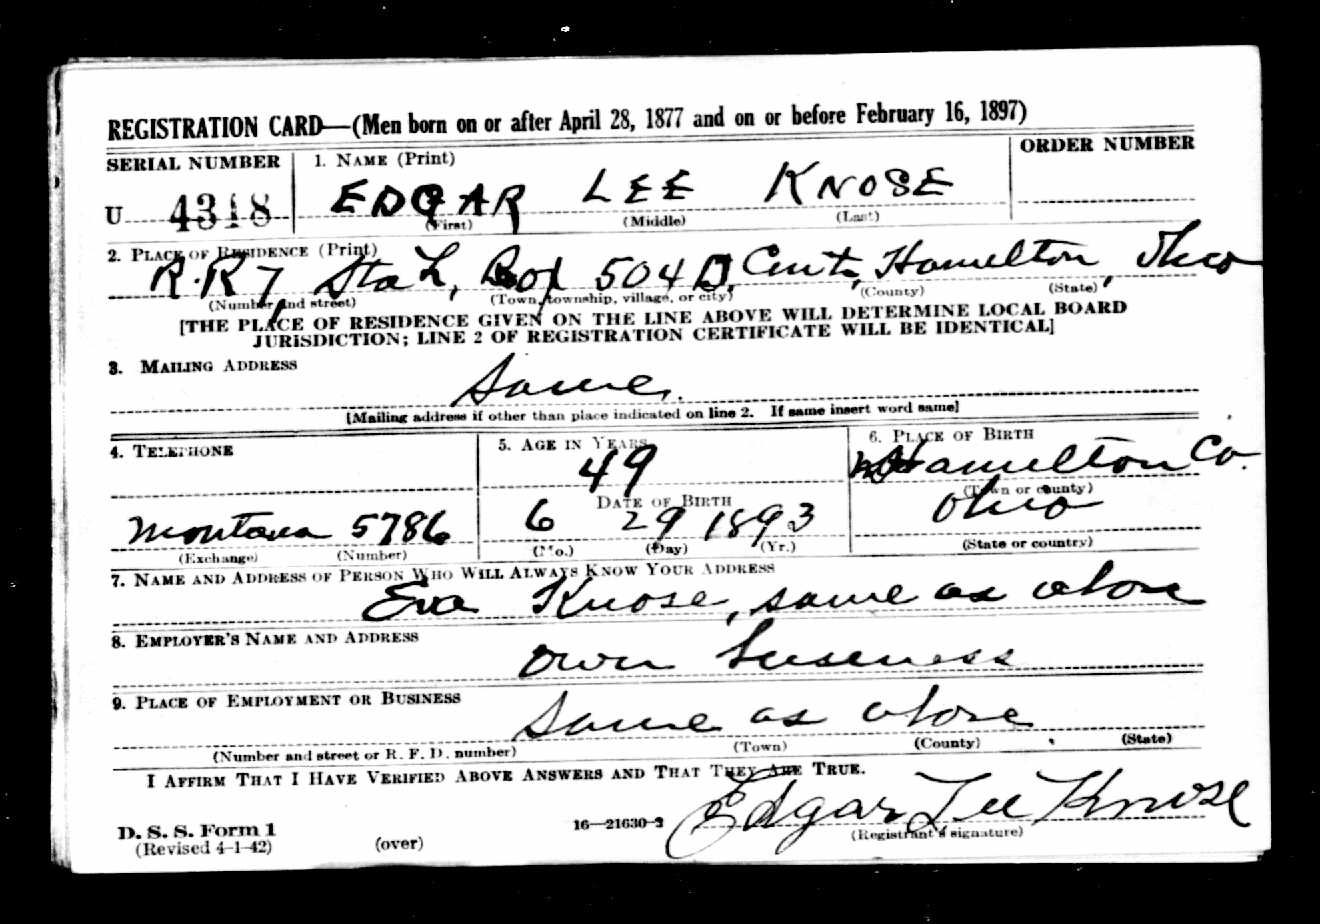 REGISTRATION CARD—(Men born on or after April 28, 1877 and on or before February 16, 1897)
SERIAL NUMBER
1. NAME (Print)
ORDER NUMBER
U 4318
EDGAR LEE KNOSE
(First) (Middle) (Last)
2. PLACE OF RESIDENCE (Print)
R.R 7, Sta L, Box 504 D. Cint, Hamilton, Ohio
(Number and street) (Town, township, village, or city) (County) (State)
[THE PLACE OF RESIDENCE GIVEN ON THE LINE ABOVE WILL DETERMINE LOCAL BOARD
JURISDICTION; LINE 2 OF REGISTRATION CERTIFICATE WILL BE IDENTICAL]
3. MAILING ADDRESS
Same.
[Mailing address if other than place indicated on line 2. If same insert word same]
4. TELEPHONE
5. AGE IN YEARS
6. PLACE OF BIRTH
49
Hamilton Co.
(Town or county)
DATE OF BIRTH
Ohio
Montana 5786
6 29 1893
(Exchange) (Number)
(Mo.) (Day) (Yr.)
(State or country)
7. NAME AND ADDRESS OF PERSON WHO WILL ALWAYS KNOW YOUR ADDRESS
Eva Knose, same as above
8. EMPLOYER'S NAME AND ADDRESS
Own buseness
9. PLACE OF EMPLOYMENT OR BUSINESS
Same as above
(Number and street or R. F. D. number) (Town) (County) (State)
I AFFIRM THAT I HAVE VERIFIED ABOVE ANSWERS AND THAT THEY ARE TRUE.
Edgar Lee Knose
D. S. S. Form 1
(Revised 4-1-42) (over) 16—21630-2 (Registrant's signature)